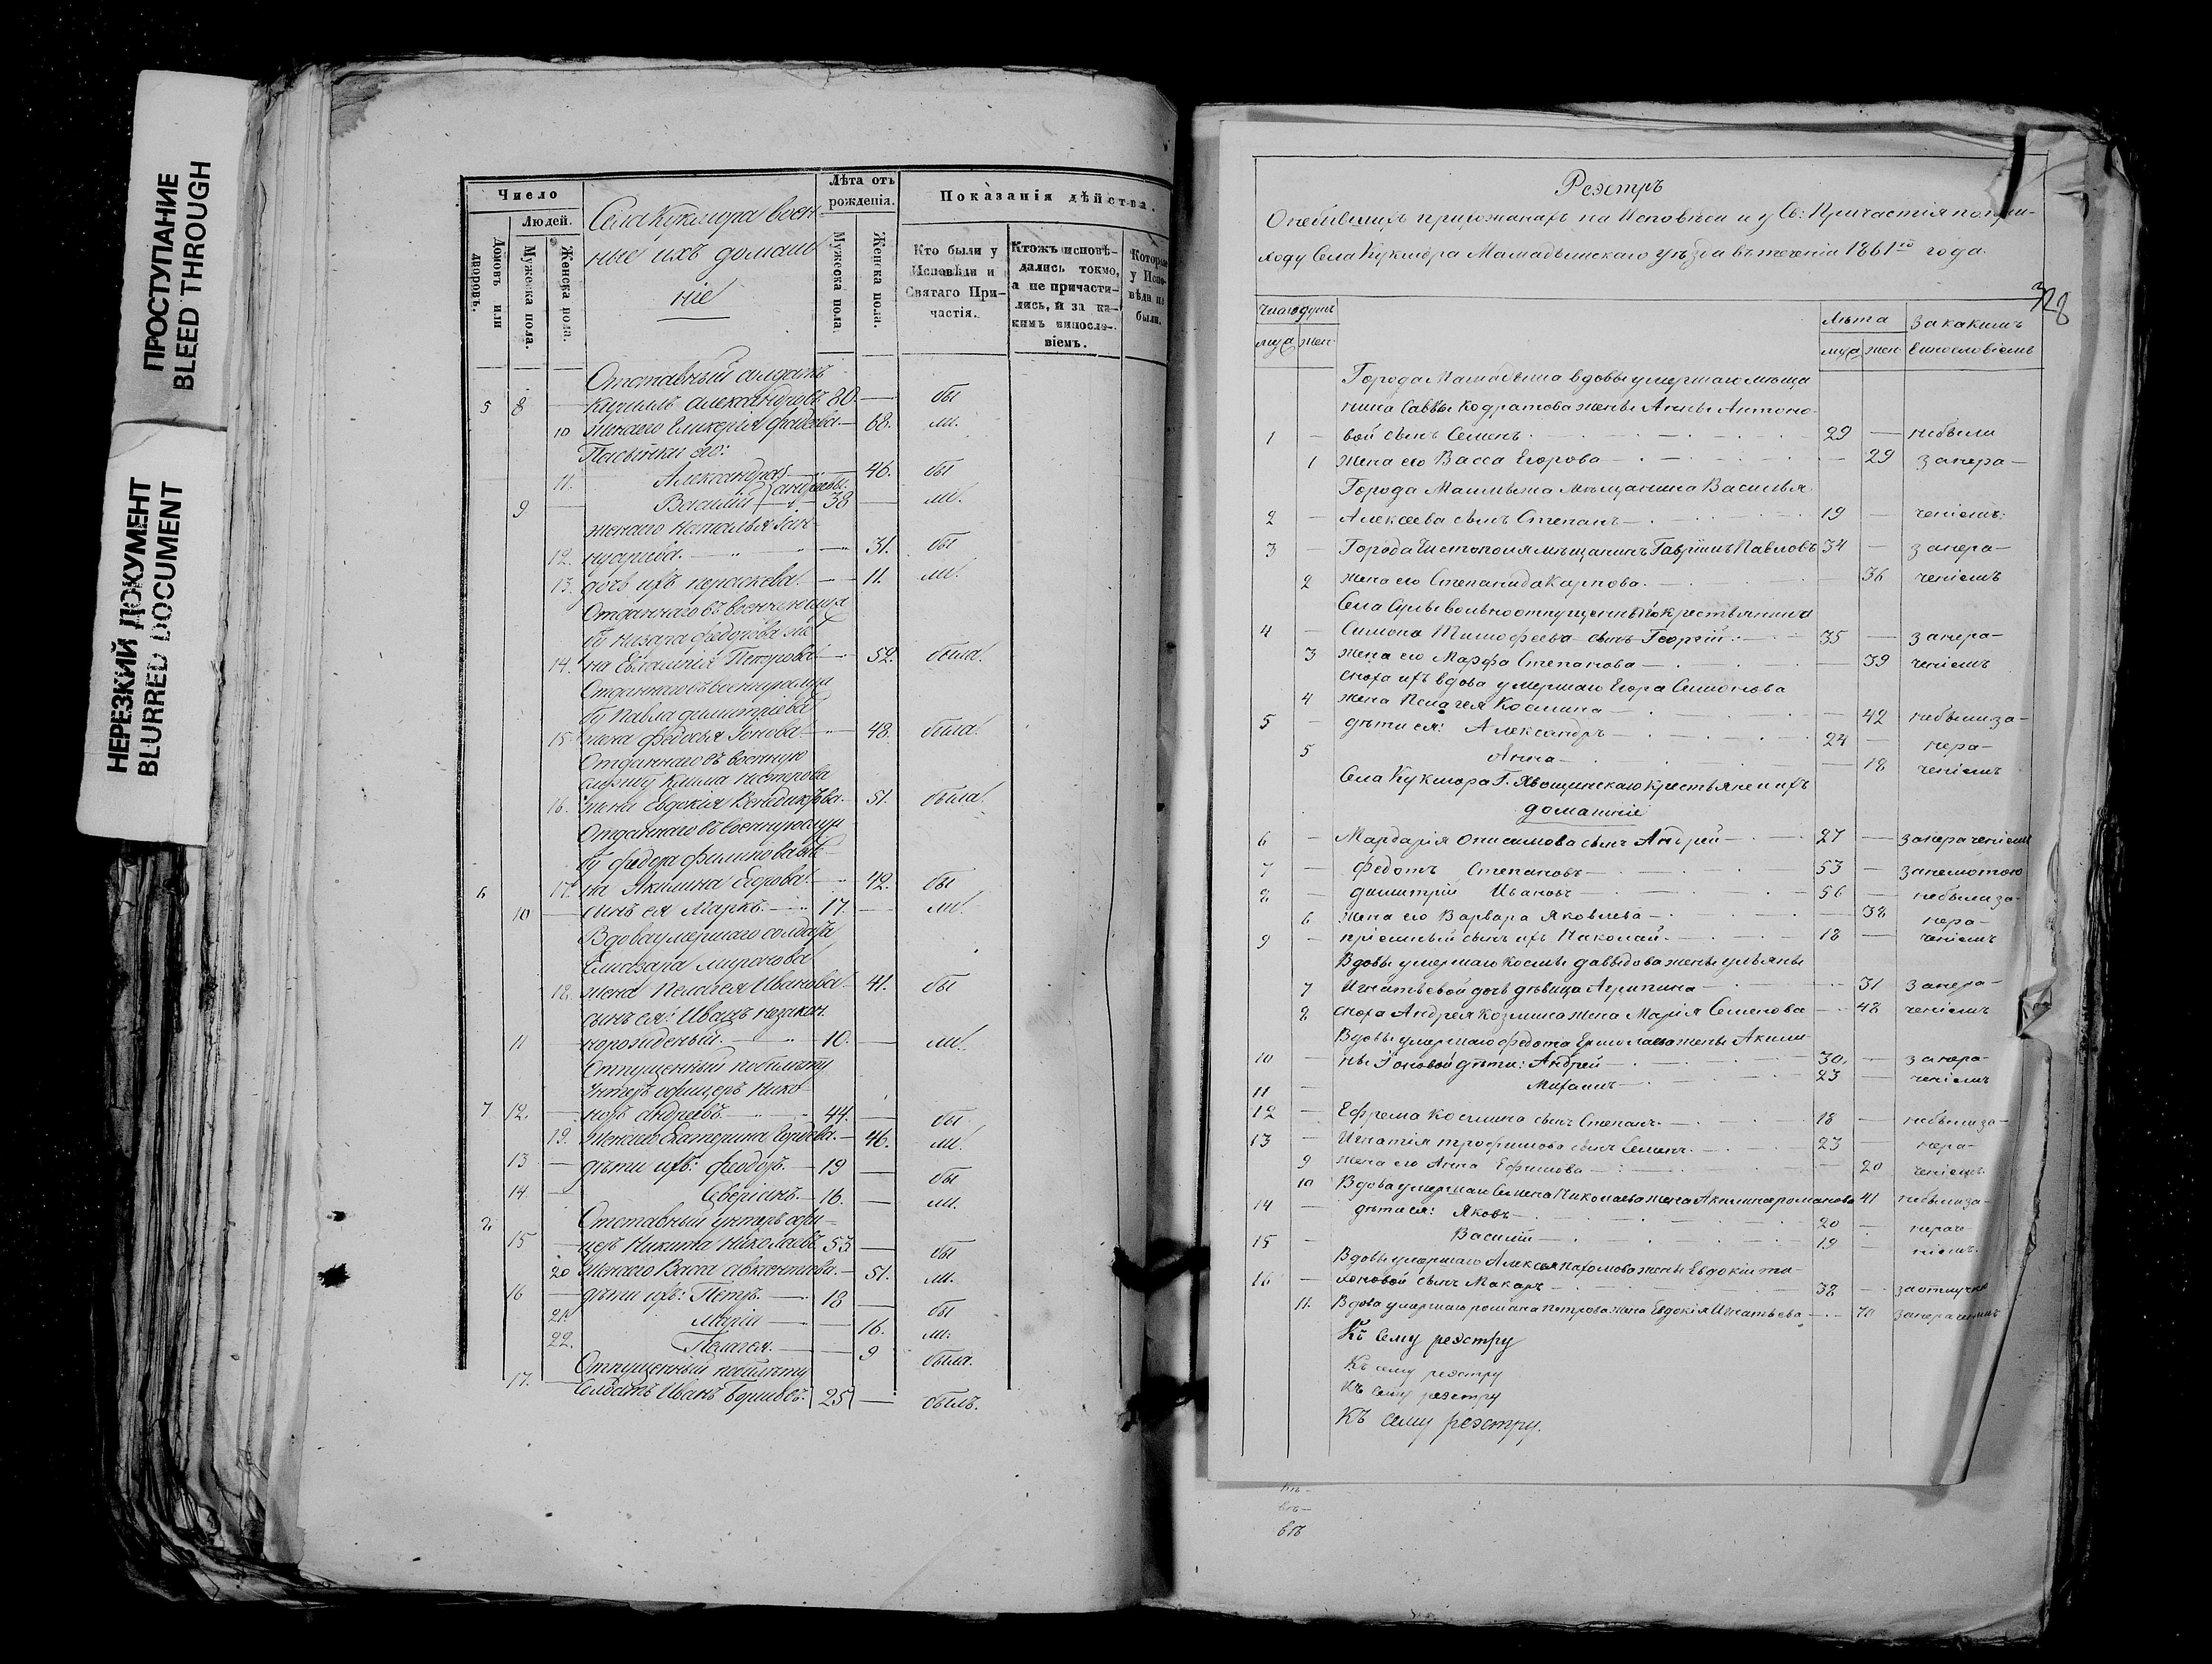 ПРОСТУПАНИЕ
BLEED THROUGH
НЕРЕЗКИЙ ДОКУМЕНТ
BLURRED DOCUMENT
Число
Людей.
Домовъ или дворовъ.
Мужеска пола.
Женска пола.
Села Кукмора воен
ные ихъ домаш
ніе
Лѣта отъ рожденія.
Мужеска пола.
Женска пола.
Показанія дѣйства.
Кто были у Исповѣди и Святаго Причастія.
Ктожъ исповѣдались токмо, а не причастились, и за какимъ винословіемъ.
Которые у Исповѣди не были.
Отставный солдатъ
5 8 — Кирилъ Александровъ 80. — бы
10 жена его Гликерія Фадеева — 68. ли.
Пасынки его:
11. Александра — 46. бы
9 — Василій Андреевы — 38 — ли.
жена его Наталья
12. — 31. бы
13. дочь ихъ Параскева — 11. ли.
Отданнаго въ военную служ
бу Федотова же
14. на Евгенія Петрова — 52. была.
Отданнаго въ военную служ
бу Павла Димитріева
15. жена Федосья Іонова — 48. была.
Отданнаго въ военную
службу Клима Нестерова
16. жена Евдокія — 51. была.
Отданнаго въ военную служ
бу Федора Филипова же
6 17. на Акилина Егорова — 42. бы
10 — сынъ ея Маркъ. — 17. — ли.
Вдова умершаго солдата
Елизара Миронова
18. жена Пелагея Иванова — 41. бы
сынъ ея: Иванъ незакон
11 норожденый. — 10. — ли.
Отпущенный по билету
Унтеръ офицеръ Ника
7 12. — норъ Андреевъ. — 44. — бы
19. жена его Екатерина — 46. ли.
13 — дѣти ихъ: Феодоръ. — 19 — бы
14. — Северіанъ. — 16. — ли.
8 Отставный унтеръ офи-
15 — церъ Никита Николаевъ. 53 — бы
20 жена его Васса — 51. ли.
16 — дѣти ихъ: Петръ. — 18 — бы
21. Марія — 16. ли.
22. Пелагея. — 9 была.
Отпущенный по билету
17. Солдатъ Иванъ 25 — былъ.
Реэстръ
О небывшихъ прихожанахъ на Исповеди и у Св: Причастія по при-
ходу Села Кукмора Мамадышскаго уѣзда въ теченіи 1861го года.
328
Число душъ
муж жен.
Лѣта
муж. жен.
За какимъ
Винословіемъ
Города Мамадыша вдовы умершаго мѣща
нина Саввы Кодратова жены Анны Антоно-
1 — вой сынъ Семенъ. — 29 — небыли
1 жена его Васса Егорова — 29 за нера-
Города Мамадыша мѣщанина Василья
2 — Алексеева сынъ Степанъ — 19 — ченіемъ.
3 — Города Чистополя мѣщанинъ Гавріилъ Павловъ 34 — за нера-
2 жена его Степанида Карпова. — 36 ченіемъ
Села вольноотпущенный крестьянина
4 — Симона Тимофеева сынъ Георгій. — 35 — за нера-
3 жена его Марфа Степанова — 39 ченіемъ
сноха ихъ вдова умершаго Егора Симонова
4 жена Пелагея Космина — 42 небыли за-
5 — дѣти ея: Александръ — 24 — нера-
5 Анна — 18 ченіемъ
Села Кукмора Г. Хвощинскаго крестьяне и ихъ
домашніе
6 — Мардарія Онисимова сынъ Андрей — 27 — за нераченіемъ
7 — Федотъ Степановъ — 53 —
8 — Димитрій Ивановъ — 56 — небыли за-
6 жена его Варвара Яковлева — 38 нера-
9 — пріемный сынъ ихъ Николай. — 18 — ченіемъ
Вдовы умершаго Космы Давыдова жены Ульяны
7 Игнатьевой дочь дѣвица Агрипина — 31 за нера-
8 сноха Андрея Козмина жена Марія Семенова — 48 ченіемъ
Вдовы умершаго Федота Ермолаева жены Акили-
10 — ны Іоновой дѣти: Андрей — 30. — за нера-
11 — Михаилъ — 23 — ченіемъ
12 — Ефрема Космина сынъ Степанъ. — 18 — небыли за-
13 — Игнатія Трофимова сынъ Семенъ. — 23 — нера-
9 жена его Анна Ефимова — 20 ченіемъ.
10 Вдова умершаго Семена Николаева жена Акилина Романова 41 небыли за-
14 — дѣти ея: Яковъ — 20 — нераче-
15 — Василій — 19 — ніемъ.
Вдовы умершаго Алексея Пахомова жены Евдокіи Ти-
16 — хоновой сынъ Макаръ — 38 — за отлучкою
11. Вдова умершаго Романа Петрова жена Евдокія Игнатьева — 70 за нераченіемъ
Къ сему реэстру
Къ сему реэстру
Къ сему реэстру
Къ сему реэстру.